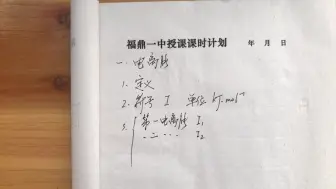 福鼎一中授课课时计划 年 月 日
一. 电离能
1. 定义
2. 符号 I 单位 kJ·mol⁻¹
3. 第一电离能 I₁
第二 ··· I₂